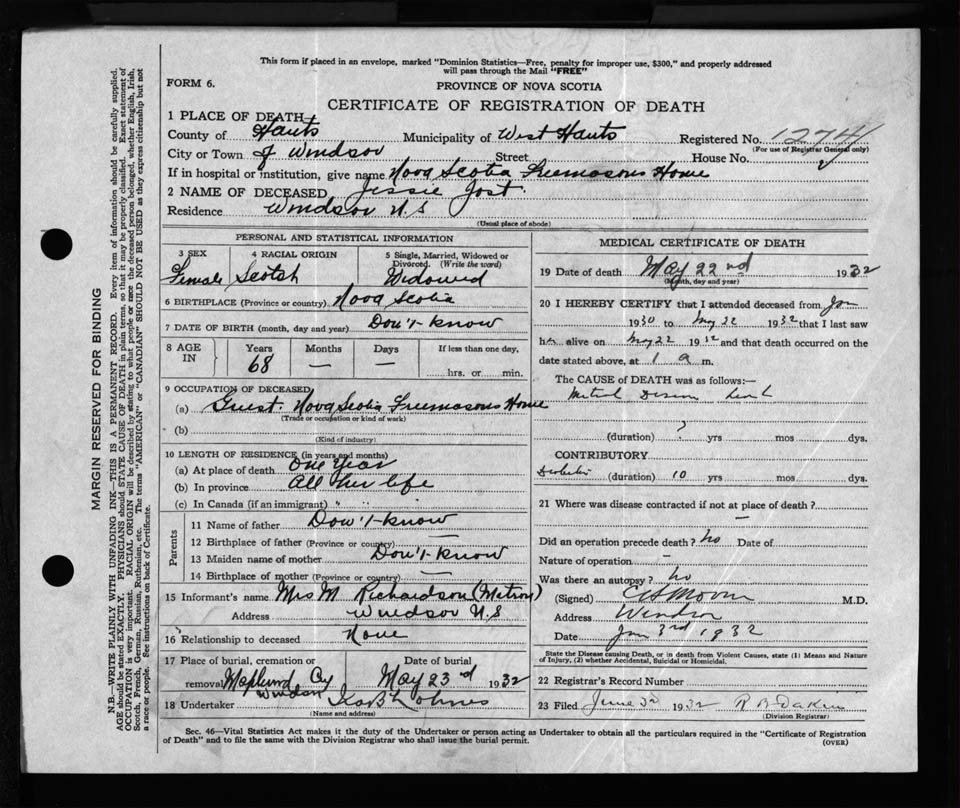 This form if placed in an envelope, marked "Dominion Statistics—Free, penalty for improper use, $300," and properly addressed
will pass through the Mail "FREE"
FORM 6.
PROVINCE OF NOVA SCOTIA
CERTIFICATE OF REGISTRATION OF DEATH
1 PLACE OF DEATH
County of Hants Municipality of West Hants Registered No. 1274
(For use of Registrar General only)
City or Town of Windsor Street House No.
If in hospital or institution, give name Nova Scotia Freemasons Home
2 NAME OF DECEASED Jessie Jost.
Residence Windsor N.S
(Usual place of abode)
PERSONAL AND STATISTICAL INFORMATION
3 SEX 4 RACIAL ORIGIN 5 Single, Married, Widowed or Divorced. (Write the word)
Female Scotch Widowed
6 BIRTHPLACE (Province or country) Nova Scotia
7 DATE OF BIRTH (month, day and year) Don't know
8 AGE IN Years Months Days If less than one day,
68 — — hrs. or min.
9 OCCUPATION OF DECEASED
(a) Guest Nova Scotia Freemasons Home
(Trade or occupation or kind of work)
(b)
(Kind of industry)
10 LENGTH OF RESIDENCE (in years and months)
(a) At place of death One Year
(b) In province All her life
(c) In Canada (if an immigrant) " " "
Parents
11 Name of father Don't know
12 Birthplace of father (Province or country) —
13 Maiden name of mother Don't know
14 Birthplace of mother (Province or country) —
15 Informant's name Mrs M Richardson (Matron)
Address Windsor N.S
16 Relationship to deceased None
17 Place of burial, cremation or removal Date of burial
Windsor May 23rd 1932
18 Undertaker
(Name and address)
MEDICAL CERTIFICATE OF DEATH
19 Date of death May 22nd 1932
(Month, day and year)
20 I HEREBY CERTIFY that I attended deceased from Jan
1930 to May 22 1932 that I last saw
her alive on May 22 1932 and that death occurred on the
date stated above, at 1 a m.
The CAUSE OF DEATH was as follows:—
Mitral Disease heart
(duration) ? yrs mos dys.
CONTRIBUTORY
Diabetes (duration) 10 yrs mos dys.
21 Where was disease contracted if not at place of death?
—
Did an operation precede death? no Date of
Nature of operation —
Was there an autopsy? no
(Signed) M.D.
Address Windsor
Date 3rd 1932
State the Disease causing Death, or in death from Violent Causes, state (1) Means and Nature
of Injury, (2) whether Accidental, Suicidal or Homicidal.
22 Registrar's Record Number
23 Filed June 3d 1932 R B Dakin
(Division Registrar)
Sec. 46—Vital Statistics Act makes it the duty of the Undertaker or person acting as Undertaker to obtain all the particulars required in the "Certificate of Registration
of Death" and to file the same with the Division Registrar who shall issue the burial permit. (OVER)
MARGIN RESERVED FOR BINDING
N.B.—WRITE PLAINLY WITH UNFADING INK—THIS IS A PERMANENT RECORD. Every item of information should be carefully supplied.
AGE should be stated EXACTLY. PHYSICIANS should STATE CAUSE OF DEATH in plain terms, so that it may be properly classified. Exact statement of
OCCUPATION is very important. RACIAL ORIGIN will be described by stating to what people or race the deceased person belonged, whether English, Irish,
Scotch, French, German, Russian, Ruthenian, etc. The terms "AMERICAN" or "CANADIAN" SHOULD NOT BE USED as they express citizenship but not
a race or people. See instructions on back of Certificate.